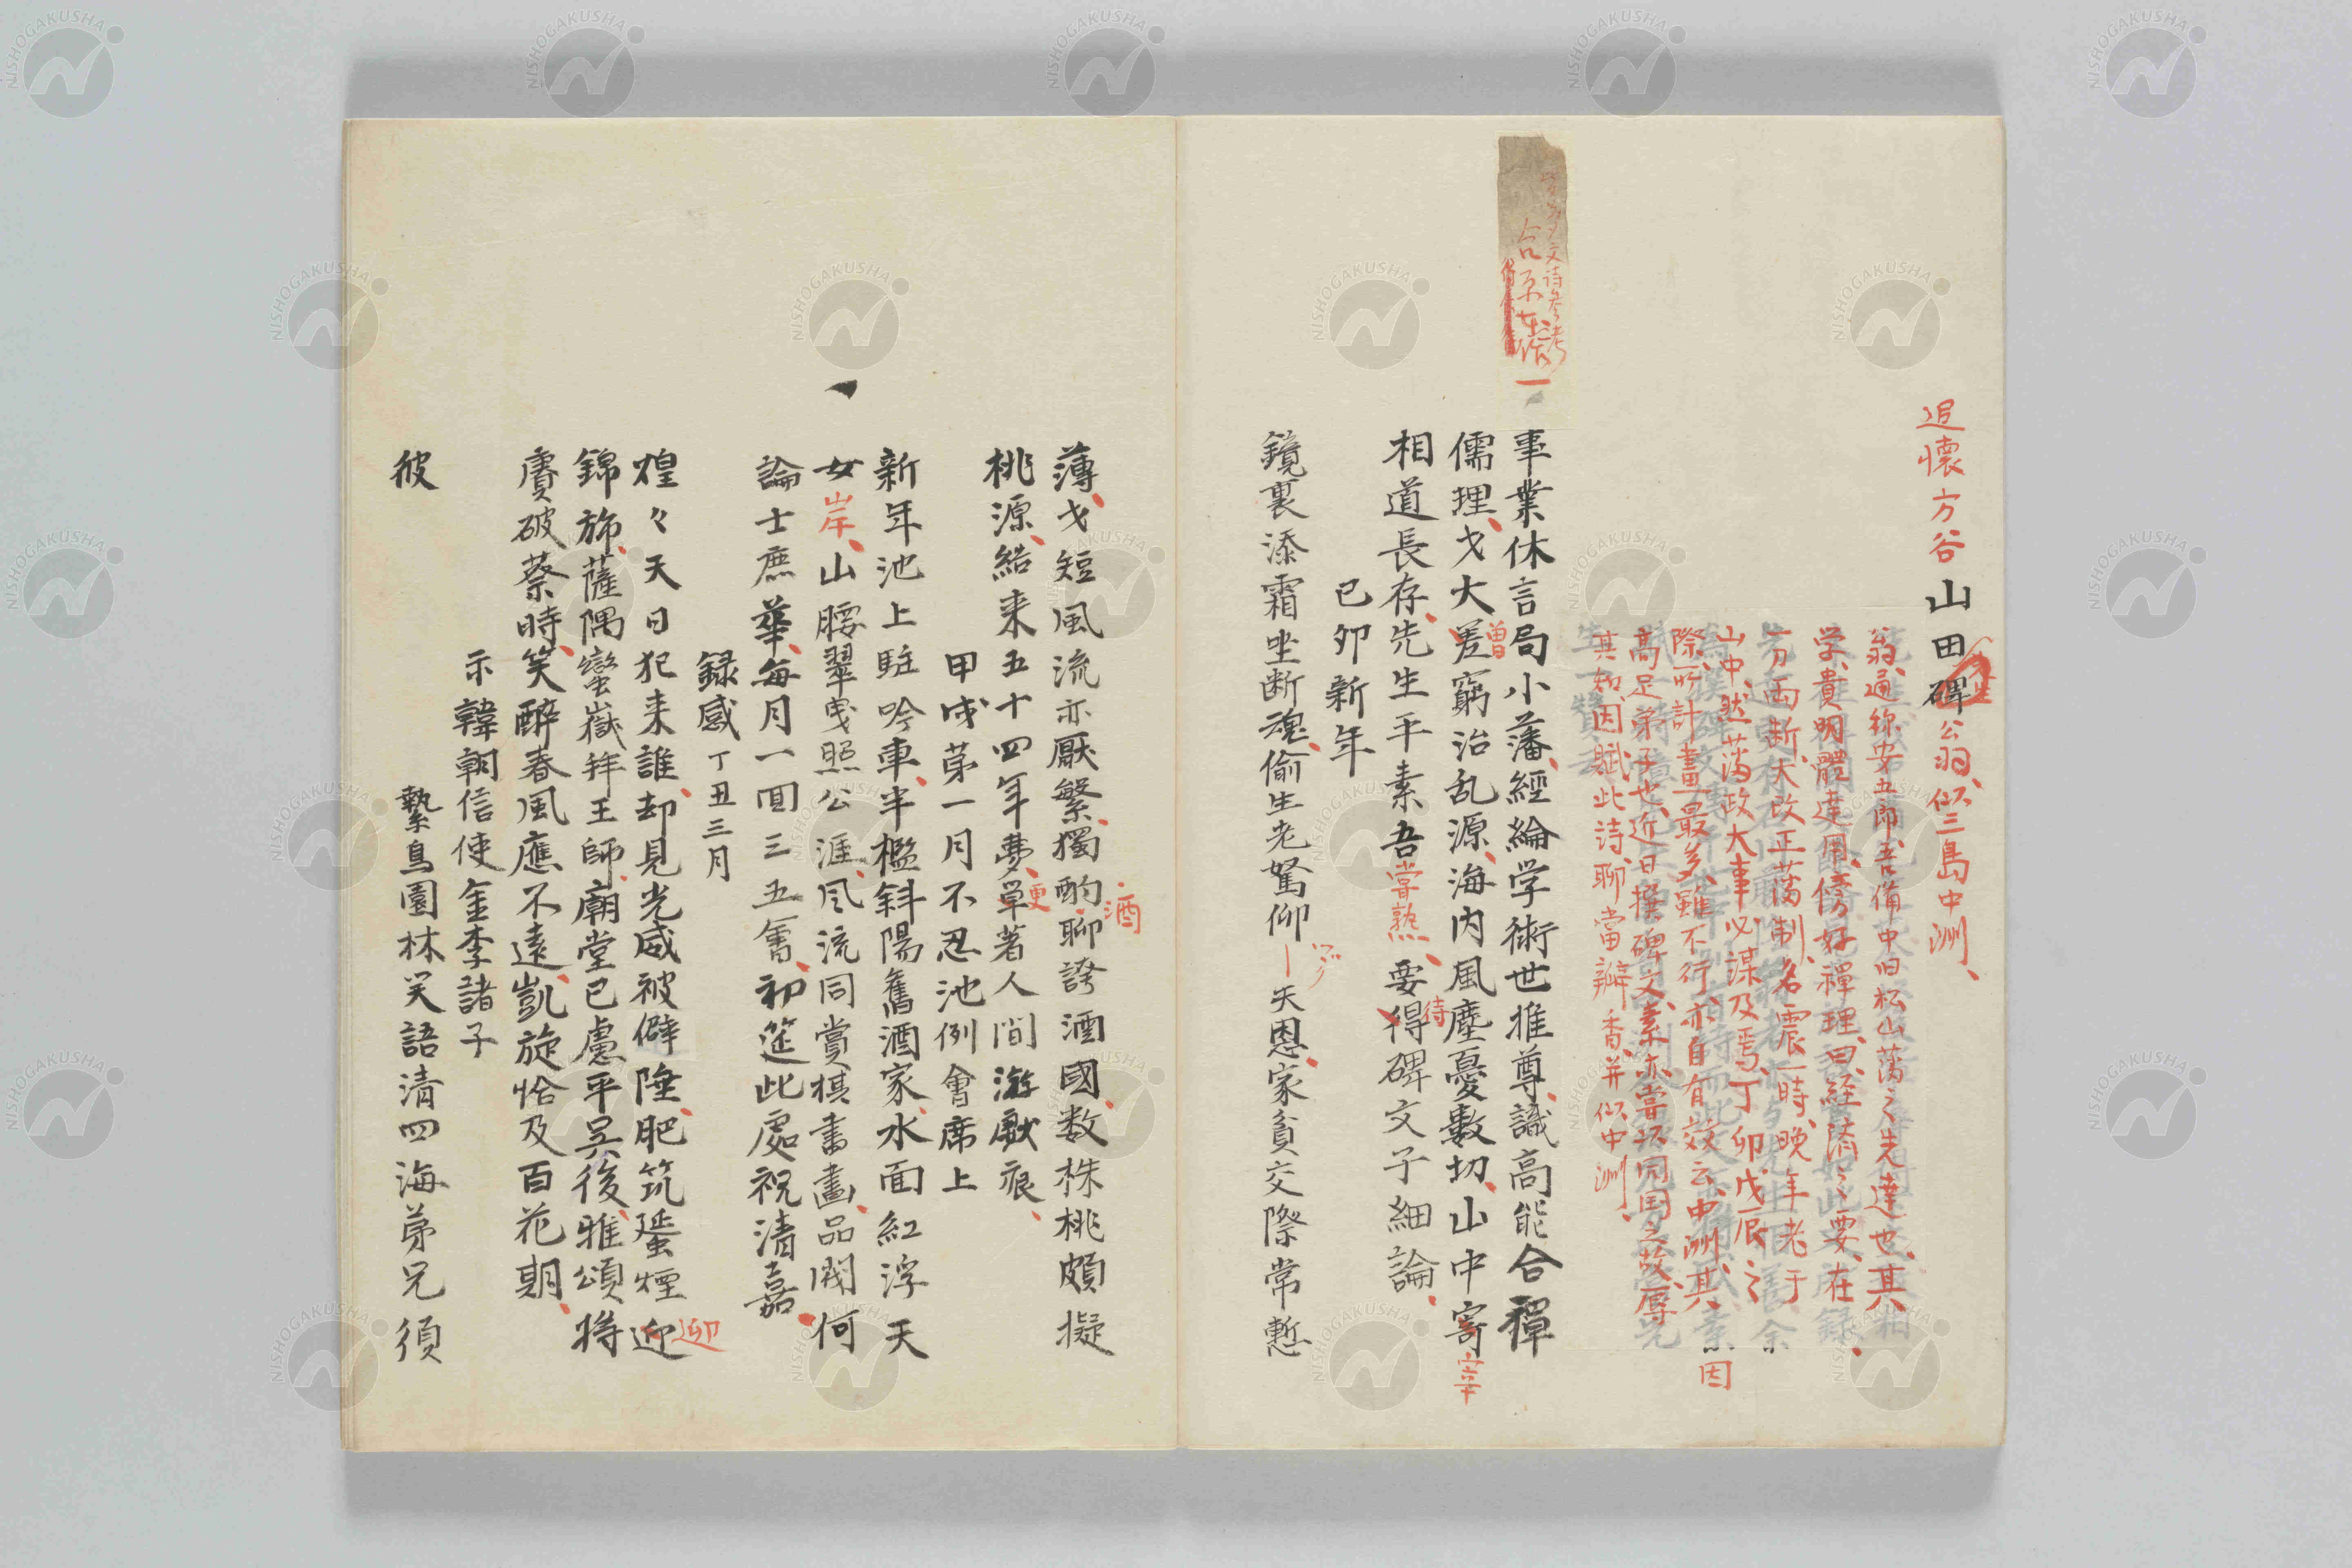 追懷方谷山田碑公翁、似三島中洲、
翁、通称安五郎、吾備中旧松山藩之先達也、其
学、貴明體達用、傍好禪理、曰、経済之要、在
一刀両断、大改正藩制、名震一時、晩年老于
山中、然藩政大事必謀及焉、丁卯戊辰之
際、所計畫最多、雖不行、亦自有效云、中洲其
高足弟子也、近日撰碑文、素亦嘗以同国之故、辱
其知、因賦此詩、聊當瓣香、并似中洲、
因
事業休言局小藩、經綸学術世推尊、識高能合禪
儒理、才大差窮治乱源、海内風塵憂數切、山中寄
曽
宰
相道長存、先生平素吾嘗熟、要得碑文子細論、
待
己卯新年
鏡裏添霜坐断魂、偷生老駑仰天恩、家貧交際常慙
薄、才短風流亦厭繁、獨酌聊誇酒國、数株桃頗擬
酒
桃源、結来五十四年夢、單著人間游戲痕、
更
甲戌第一月不忍池例會席上
新年池上駐吟車、半檻斜陽舊酒家、水面紅浮天
女岸、山腰翠曳照公涯、風流同賞棋書畫、品閱何
論士庶華、每月一回三五會、初筵此處祝清嘉、
録感丁丑三月
煌々天日犯来誰、却見光威被僻陲、肥筑蜑煙迎
迎
錦旆、薩隅蠻嶽拝王師、廟堂已慮平呉後、雅頌将
賡破蔡時、笑醉春風應不遠、凱旋恰及百花期、
示韓朝信使金李諸子
縶鳥園林笑語清四海弟兄須
彼